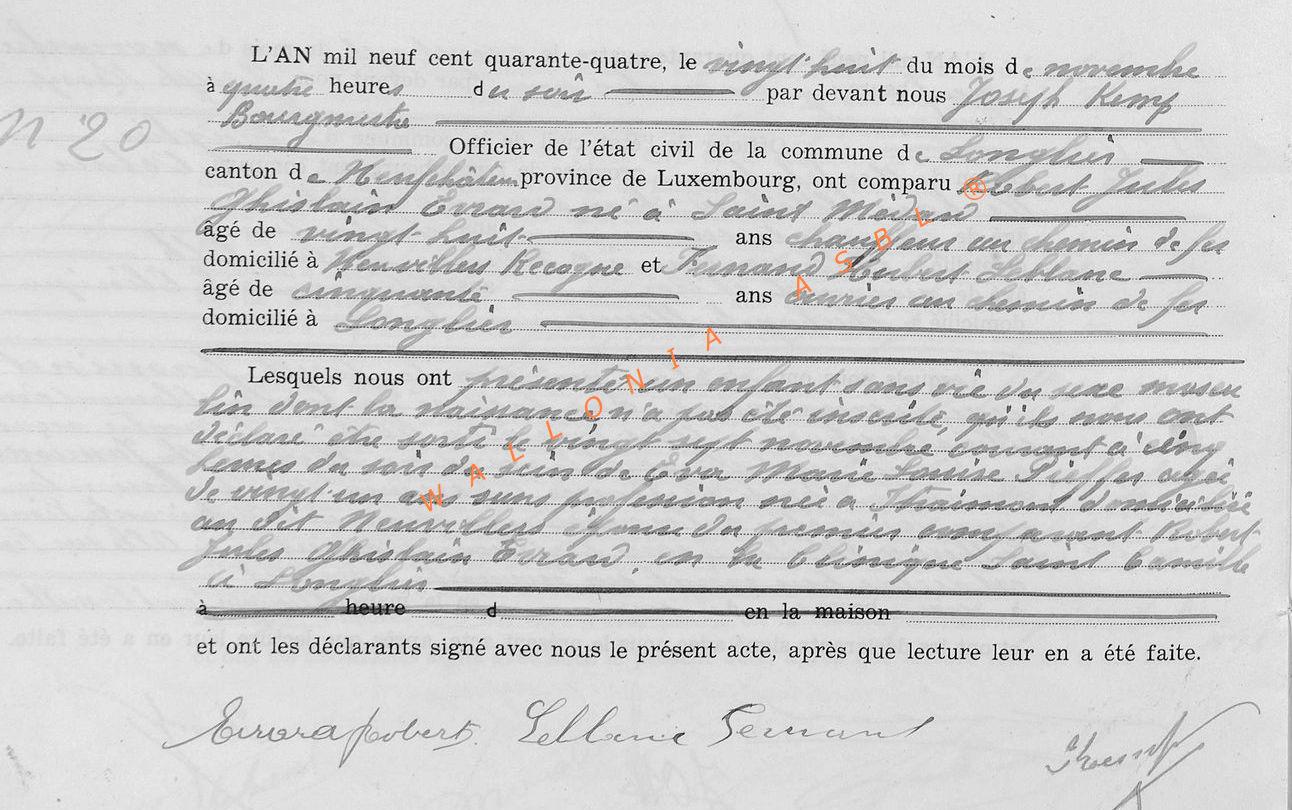 L'AN mil neuf cent quarante-quatre, le vingt huit du mois de novembre
à quatre heures du soir par devant nous Joseph Kemp
Bourgmestre
N 20
Officier de l'état civil de la commune de Longlier
canton de Neufchâteau province de Luxembourg, ont comparu Robert Jules
Ghislain Evrard né à Saint Médard
âgé de vingt huit ans chauffeur au chemin de fer
domicilié à Neuvillers Recogne et Fernand Hubert Leblanc
âgé de cinquante ans ouvrier au chemin de fer
domicilié à Longlier
Lesquels nous ont présenté un enfant sans vie du sexe mascu
lin dont la naissance n'a pas été inscrite, qu'ils nous ont
déclaré être sorti le vingt sept novembre courant à cinq
heures du soir du sein de Eva Marie Louise Pieffer âgée
de vingt un ans sans profession née à Straimont domiciliée
au dit Neuvillers épouse du premier comparant Robert
Jules Ghislain Evrard, en la Clinique Saint Camille
à Longlier
à heure d en la maison
et ont les déclarants signé avec nous le présent acte, après que lecture leur en a été faite.
Evrard Robert Leblanc Fernand Kemp
WALLONIA ASBL ®